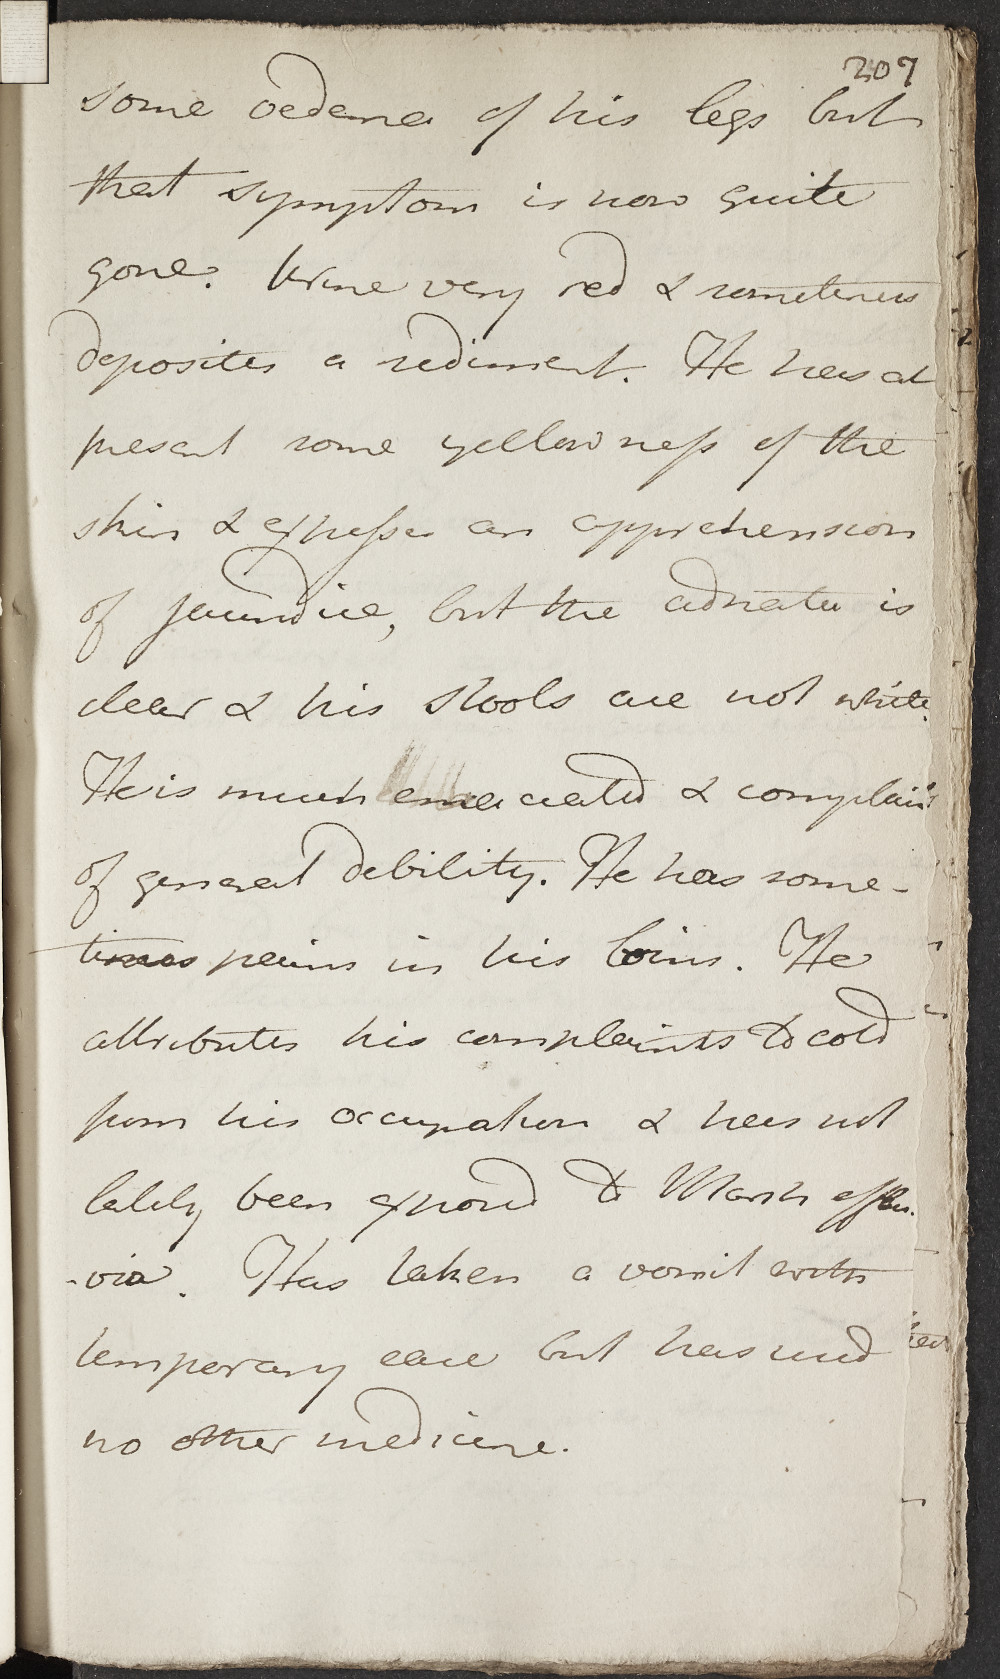 207
some oedema of his legs but
that symptom is now quite
gone. Urine very red & sometimes
deposites a sediment. He has at
present some yellowness of the
skin & expresses an apprehension
of jaundice, but the adnata is
clear & his stools are not white.
He is much emaciated & complains
of general debility. He has some-
times pains in his loins. He
attributes his complaints to cold
from his occupation & has not
lately been exposed to Marsh efflu-
-via. Has taken a vomit with
temporary ease but has used
no other medicine.